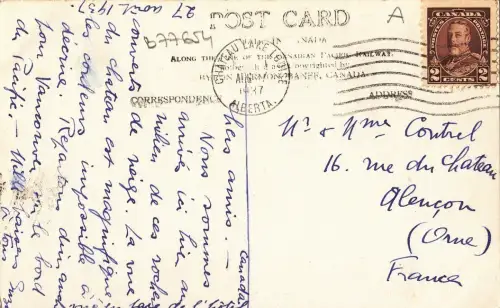 POST CARD
A
b77654
CANADA
2 2
CENTS
ALONG THE LINE OF THE CANADIAN PACIFIC RAILWAY.
BYRON HARMON, BANFF, CANADA
CORRESPONDENCE
ADDRESS
CHATEAU LAKE LOUISE
ALBERTA
27 août 1937.
Canada
Chers amis. —
Nous sommes
arrivés ici hier au
milieu de ces rochers
couverts de neige. La vue
du château est magnifique
les couleurs impossible à
décrire. Repartons dimanche
pour Vancouver sur le bord
du Pacifique. — Mille
à tous
Mr & Mme Contrel
16. rue du Chateau
Alençon
(Orne)
France